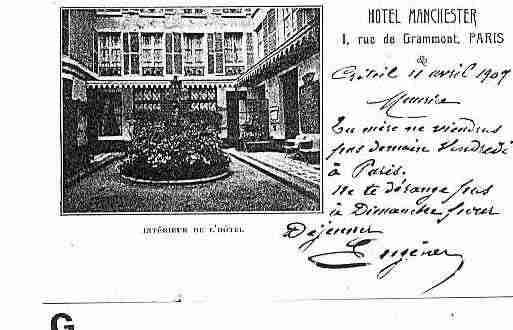 HOTEL MANCHESTER
1, rue de Grammont, PARIS
Créteil 11 avril 1907
Maurice
ne viendras
pas demain Vendredi
à Paris.
Ne te dérange pas
à Dimanche pour
Déjeuner
Eugène
INTÉRIEUR DE L'HÔTEL
G